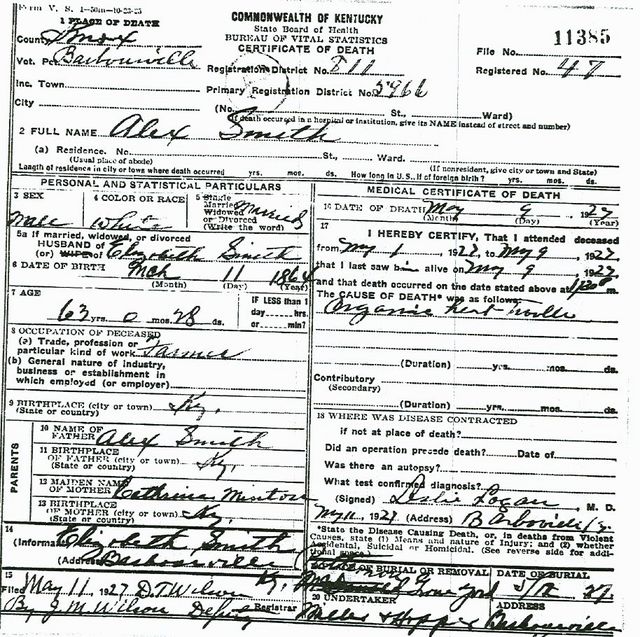 Form V. S. 1-50m-10-23-25
COMMONWEALTH OF KENTUCKY
State Board of Health
BUREAU OF VITAL STATISTICS
CERTIFICATE OF DEATH
1 PLACE OF DEATH
County Knox
Vot. Pct. Barbourville
Inc. Town
City
Registration District No. 811
Primary Registration District No. 5966
File No. 11385
Registered No. 47
(No. St., Ward)
(If death occured in a hospital or institution, give its NAME instead of street and number)
2 FULL NAME Alex Smith
(a) Residence. No. St., Ward.
(Usual place of abode) (If nonresident, give city or town and State)
Length of residence in city or town where death occurred yrs. mos. ds. How long in U. S., if of foreign birth? yrs. mos. ds.
PERSONAL AND STATISTICAL PARTICULARS
3 SEX Male
4 COLOR OR RACE White
5 Single
Married
Widowed
or Divorced
(Write the word) Married
5a If married, widowed, or divorced
HUSBAND of
(or) WIFE of Elizabeth Smith
6 DATE OF BIRTH Mch 11 1864
(Month) (Day) (Year)
7 AGE
63 yrs. 0 mos. 28 ds.
IF LESS than 1
day hrs.
or min.?
8 OCCUPATION OF DECEASED
(a) Trade, profession or
particular kind of work Farmer
(b) General nature of industry,
business or establishment in
which employed (or employer)
9 BIRTHPLACE (city or town) Ky.
(State or country)
PARENTS
10 NAME OF
FATHER Alex Smith
11 BIRTHPLACE
OF FATHER (city or town) Ky.
(State or country)
12 MAIDEN NAME
OF MOTHER Cathrine
13 BIRTHPLACE
OF MOTHER (city or town) Ky
(State or country)
14
(Informant) Elizabeth Smith
(Address) Barbourville Ky.
15
Filed May 11 1927 D. T. Wilson
By J. M. Wilson Deputy Registrar
MEDICAL CERTIFICATE OF DEATH
16 DATE OF DEATH May 9, 1927
(Month) (Day) (Year)
17
I HEREBY CERTIFY, That I attended deceased
from May 1, 1927 to May 9, 1927
that I last saw him alive on May 9, 1927
and that death occurred on the date stated above at m.
The CAUSE OF DEATH* was as follows:
Organic heart
(Duration) yrs. mos. ds.
Contributory
(Secondary)
(Duration) yrs. mos. ds.
18 WHERE WAS DISEASE CONTRACTED
if not at place of death?
Did an operation precede death? Date of
Was there an autopsy?
What test confirmed diagnosis?
(Signed) Leslie Logan M. D.
May 11, 1927 (Address) Barbourville
*State the Disease Causing Death, or, in deaths from Violent
Causes, state (1) Means and nature of Injury; and (2) whether
Accidental, Suicidal or Homicidal. (See reverse side for addi-
tional space.)
19 PLACE OF BURIAL OR REMOVAL
DATE OF BURIAL
27
20 UNDERTAKER
Miller & Hopper
ADDRESS
Barbourville